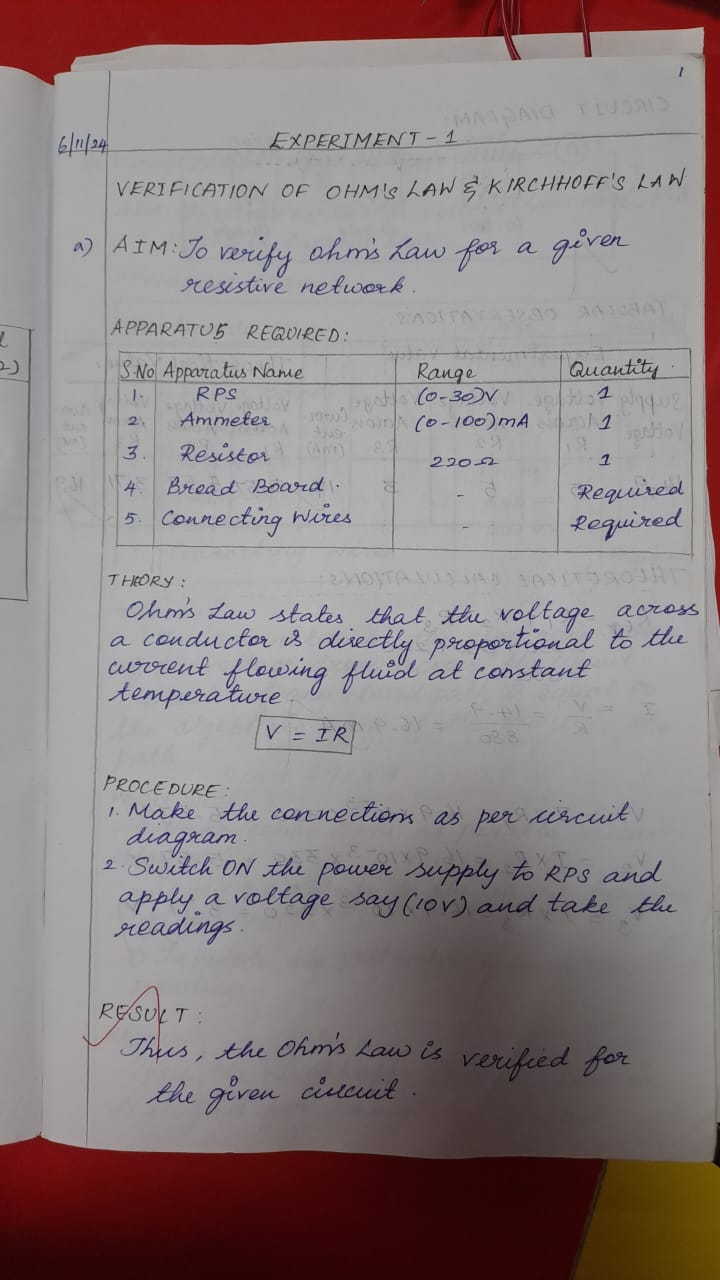 1
6/11/24 EXPERIMENT - 1
VERIFICATION OF OHM'S LAW & KIRCHHOFF'S LAW
a) AIM: To verify ohm's Law for a given
resistive network.
APPARATUS REQUIRED:
S.No Apparatus Name Range Quantity.
1. RPS (0-30)V 1
2. Ammeter (0-100)mA 1
3. Resistor 220Ω 1
4. Bread Board. - Required
5. Connecting Wires - Required
THEORY:
Ohm's Law states that the voltage across
a conductor is directly proportional to the
current flowing fluid at constant
temperature.
V = IR
PROCEDURE:
1. Make the connections as per circuit
diagram.
2. Switch ON the power supply to RPS and
apply a voltage say (10V) and take the
readings.
RESULT:
Thus, the Ohm's Law is verified for
the given circuit.